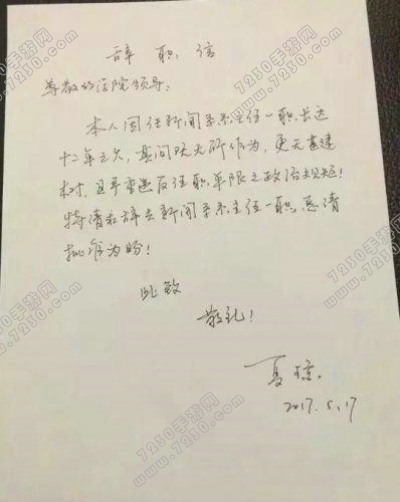 辞职信
尊敬的法院领导:
本人因任新闻系系主任一职长达
十二年之久,其间既无所作为,更无建
树,且严重违反任职年限之政治规矩!
特请求辞去新闻系系主任一职,恳请
批准为盼!
此致
敬礼!
夏琼
2017.5.17
7230手游网
www.7230.com